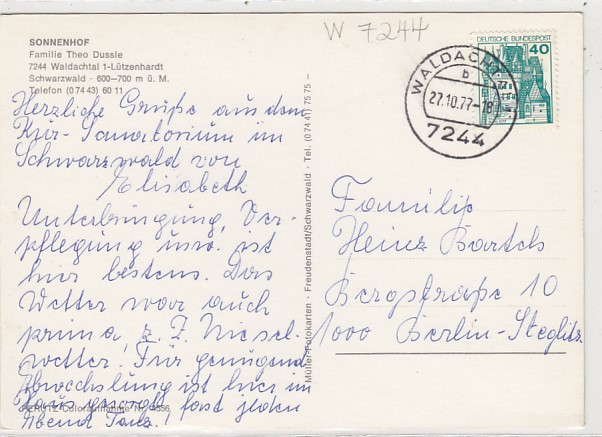 W 7244
SONNENHOF
Familie Theo Dussle
7244 Waldachtal 1-Lützenhardt
Schwarzwald · 600–700 m ü. M.
Telefon (0 74 43) 60 11
Herzliche Grüße aus dem
Kur-Sanatorium im
Schwarzwald von
Elisabeth
Unterbringung, Ver-
pflegung usw. ist
hier bestens. Das
Wetter war auch
prima, z. Z. Niesel-
wetter. Für genügend
Abwechslung ist hier im
Haus gesorgt, fast jeden
Abend Tanz!
Müller-Fotokarten - Freudenstadt/Schwarzwald - Tel. (0 74 41) 75 75 –
DEUTSCHE BUNDESPOST
40
WALDACHTAL
b
27.10.77-18
7244
Familie
Heinz Bartch
Bergstraße 10
1000 Berlin-Steglitz